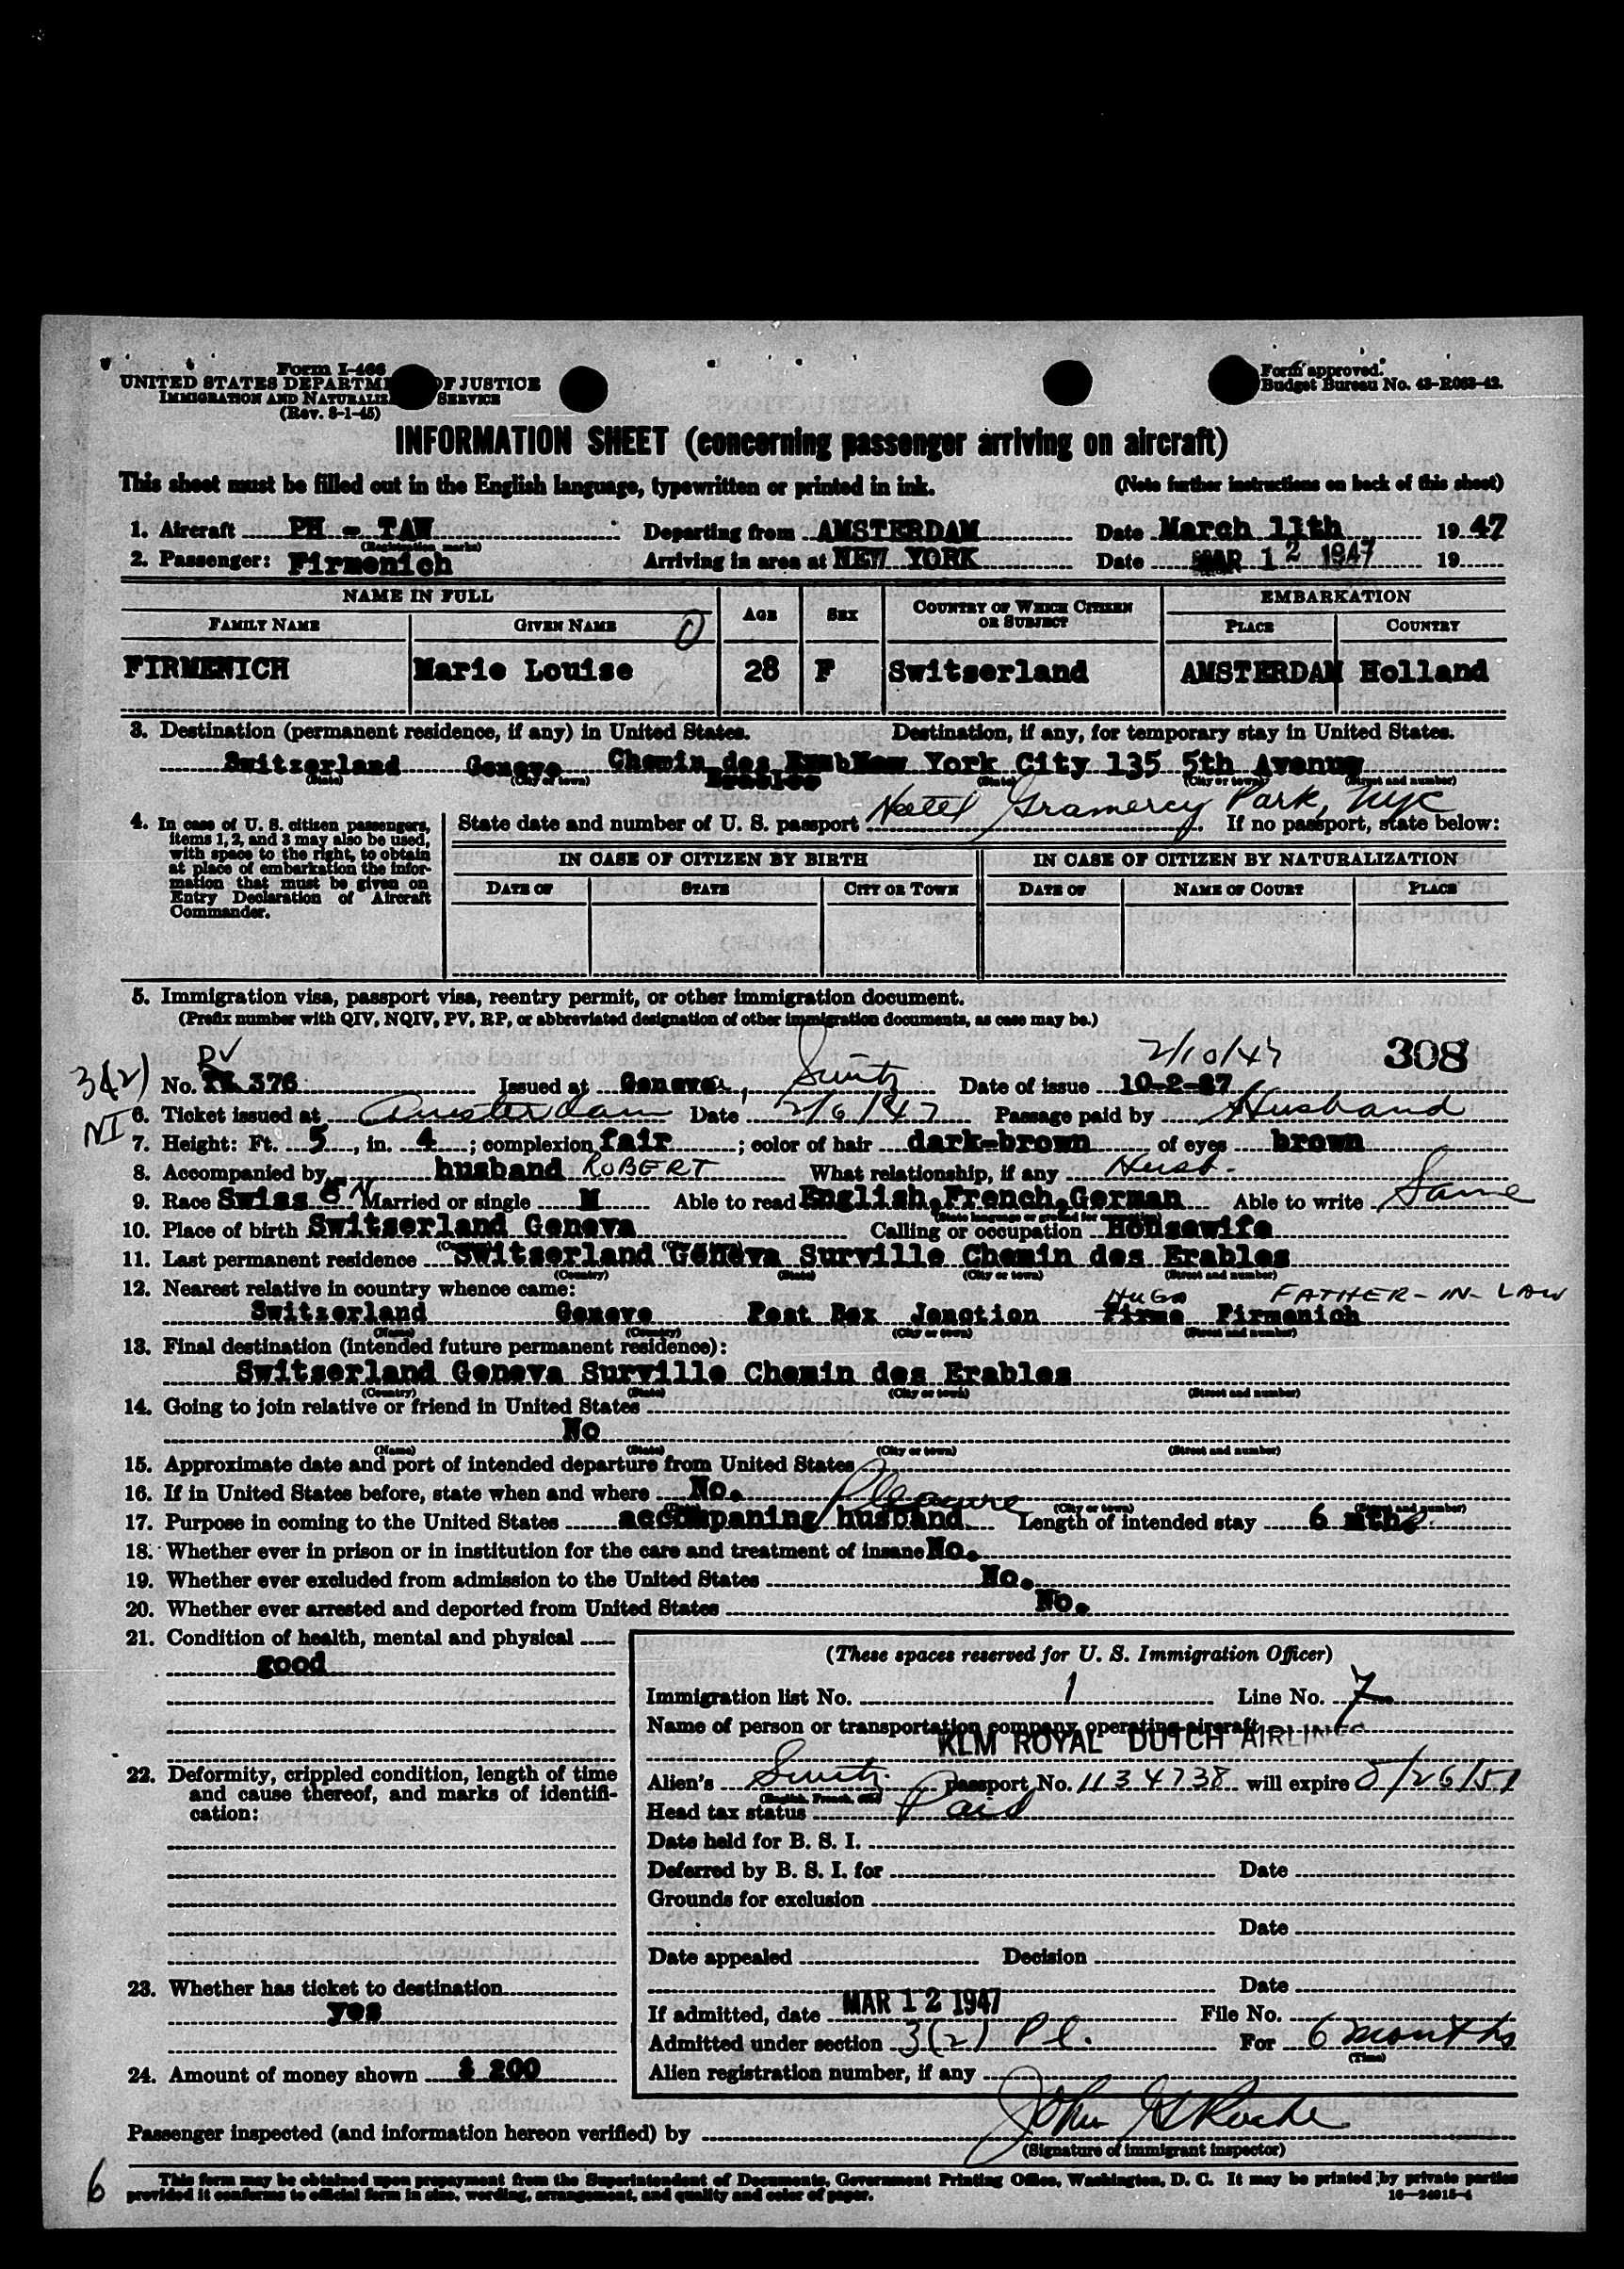 Form I-466
UNITED STATES DEPARTME OF JUSTICE
IMMIGRATION AND NATURALIZ SERVICE
(Rev. 8-1-45)
Form approved.
Budget Bureau No. 43-R063-42.
INFORMATION SHEET (concerning passenger arriving on aircraft)
This sheet must be filled out in the English language, typewritten or printed in ink. (Note further instructions on back of this sheet)
1. Aircraft PH - TAW Departing from AMSTERDAM Date March 11th 19 47
(Registration marks)
2. Passenger: Firmenich Arriving in area at NEW YORK Date MAR 12 1947 19
NAME IN FULL AGE SEX COUNTRY OF WHICH CITIZEN OR SUBJECT EMBARKATION
FAMILY NAME GIVEN NAME PLACE COUNTRY
FIRMENICH Marie Louise 28 F Switserland AMSTERDAM Holland
3. Destination (permanent residence, if any) in United States. Destination, if any, for temporary stay in United States.
Switzerland Geneve Chemin des New York City 135 5th Avenue
Erables
(State) (City or town) (State) (City or town) (Street and number)
Hotel Gramercy Park, NYC
4. In case of U. S. citizen passengers, items 1, 2, and 3 may also be used, with space to the right, to obtain at place of embarkation the information that must be given on Entry Declaration of Aircraft Commander.
State date and number of U. S. passport If no passport, state below:
IN CASE OF CITIZEN BY BIRTH IN CASE OF CITIZEN BY NATURALIZATION
DATE OF STATE CITY OR TOWN DATE OF NAME OF COURT PLACE
5. Immigration visa, passport visa, reentry permit, or other immigration document.
(Prefix number with QIV, NQIV, PV, RP, or abbreviated designation of other immigration documents, as case may be.)
PV 2/10/47 308
3(2) No. 376 Issued at Geneva, Switz Date of issue 10-2-47
NI 6. Ticket issued at Amsterdam Date 2/6/47 Passage paid by Husband
7. Height: Ft. 5, in. 4; complexion fair; color of hair dark-brown of eyes brown
8. Accompanied by husband ROBERT What relationship, if any Husb.
9. Race Swiss Married or single M Able to read English,French,German Able to write Same
(State language or ground for exemption)
10. Place of birth Switserland Geneva Calling or occupation Housewife
11. Last permanent residence Switserland Geneva Surville Chemin des Erables
(Country) (State) (City or town) (Street and number)
12. Nearest relative in country whence came: HUGO FATHER-IN-LAW
Switzerland Geneve Post Box Jonction Firme Firmenich
(Name) (Country) (City or town) (Street and number)
13. Final destination (intended future permanent residence):
Switserland Geneva Surville Chemin des Erables
(Country) (State) (City or town) (Street and number)
14. Going to join relative or friend in United States
No
(Name) (State) (City or town) (Street and number)
15. Approximate date and port of intended departure from United States
16. If in United States before, state when and where No.
Pleasure (City or town) (Street and number)
17. Purpose in coming to the United States accompaning husband Length of intended stay 6 mths.
18. Whether ever in prison or in institution for the care and treatment of insane No.
19. Whether ever excluded from admission to the United States No.
20. Whether ever arrested and deported from United States No.
21. Condition of health, mental and physical
good
(These spaces reserved for U. S. Immigration Officer)
Immigration list No. 1 Line No. 7
Name of person or transportation company operating aircraft
KLM ROYAL DUTCH AIRLINES
22. Deformity, crippled condition, length of time and cause thereof, and marks of identification:
Alien's Switz. passport No. 1134738 will expire
(English, French, etc.)
Head tax status Paid
Date held for B. S. I.
Deferred by B. S. I. for Date
Grounds for exclusion
Date
Date appealed Decision
23. Whether has ticket to destination Date
yes
If admitted, date MAR 12 1947 File No.
Admitted under section 3(2) Pl. For 6 months
(Time)
24. Amount of money shown $ 200 Alien registration number, if any
Passenger inspected (and information hereon verified) by John
(Signature of immigrant inspector)
6 This form may be obtained upon prepayment from the Superintendent of Documents, Government Printing Office, Washington, D. C. It may be printed by private parties
provided it conforms to official form in size, wording, arrangement, and quality and color of paper. 16—24915-4